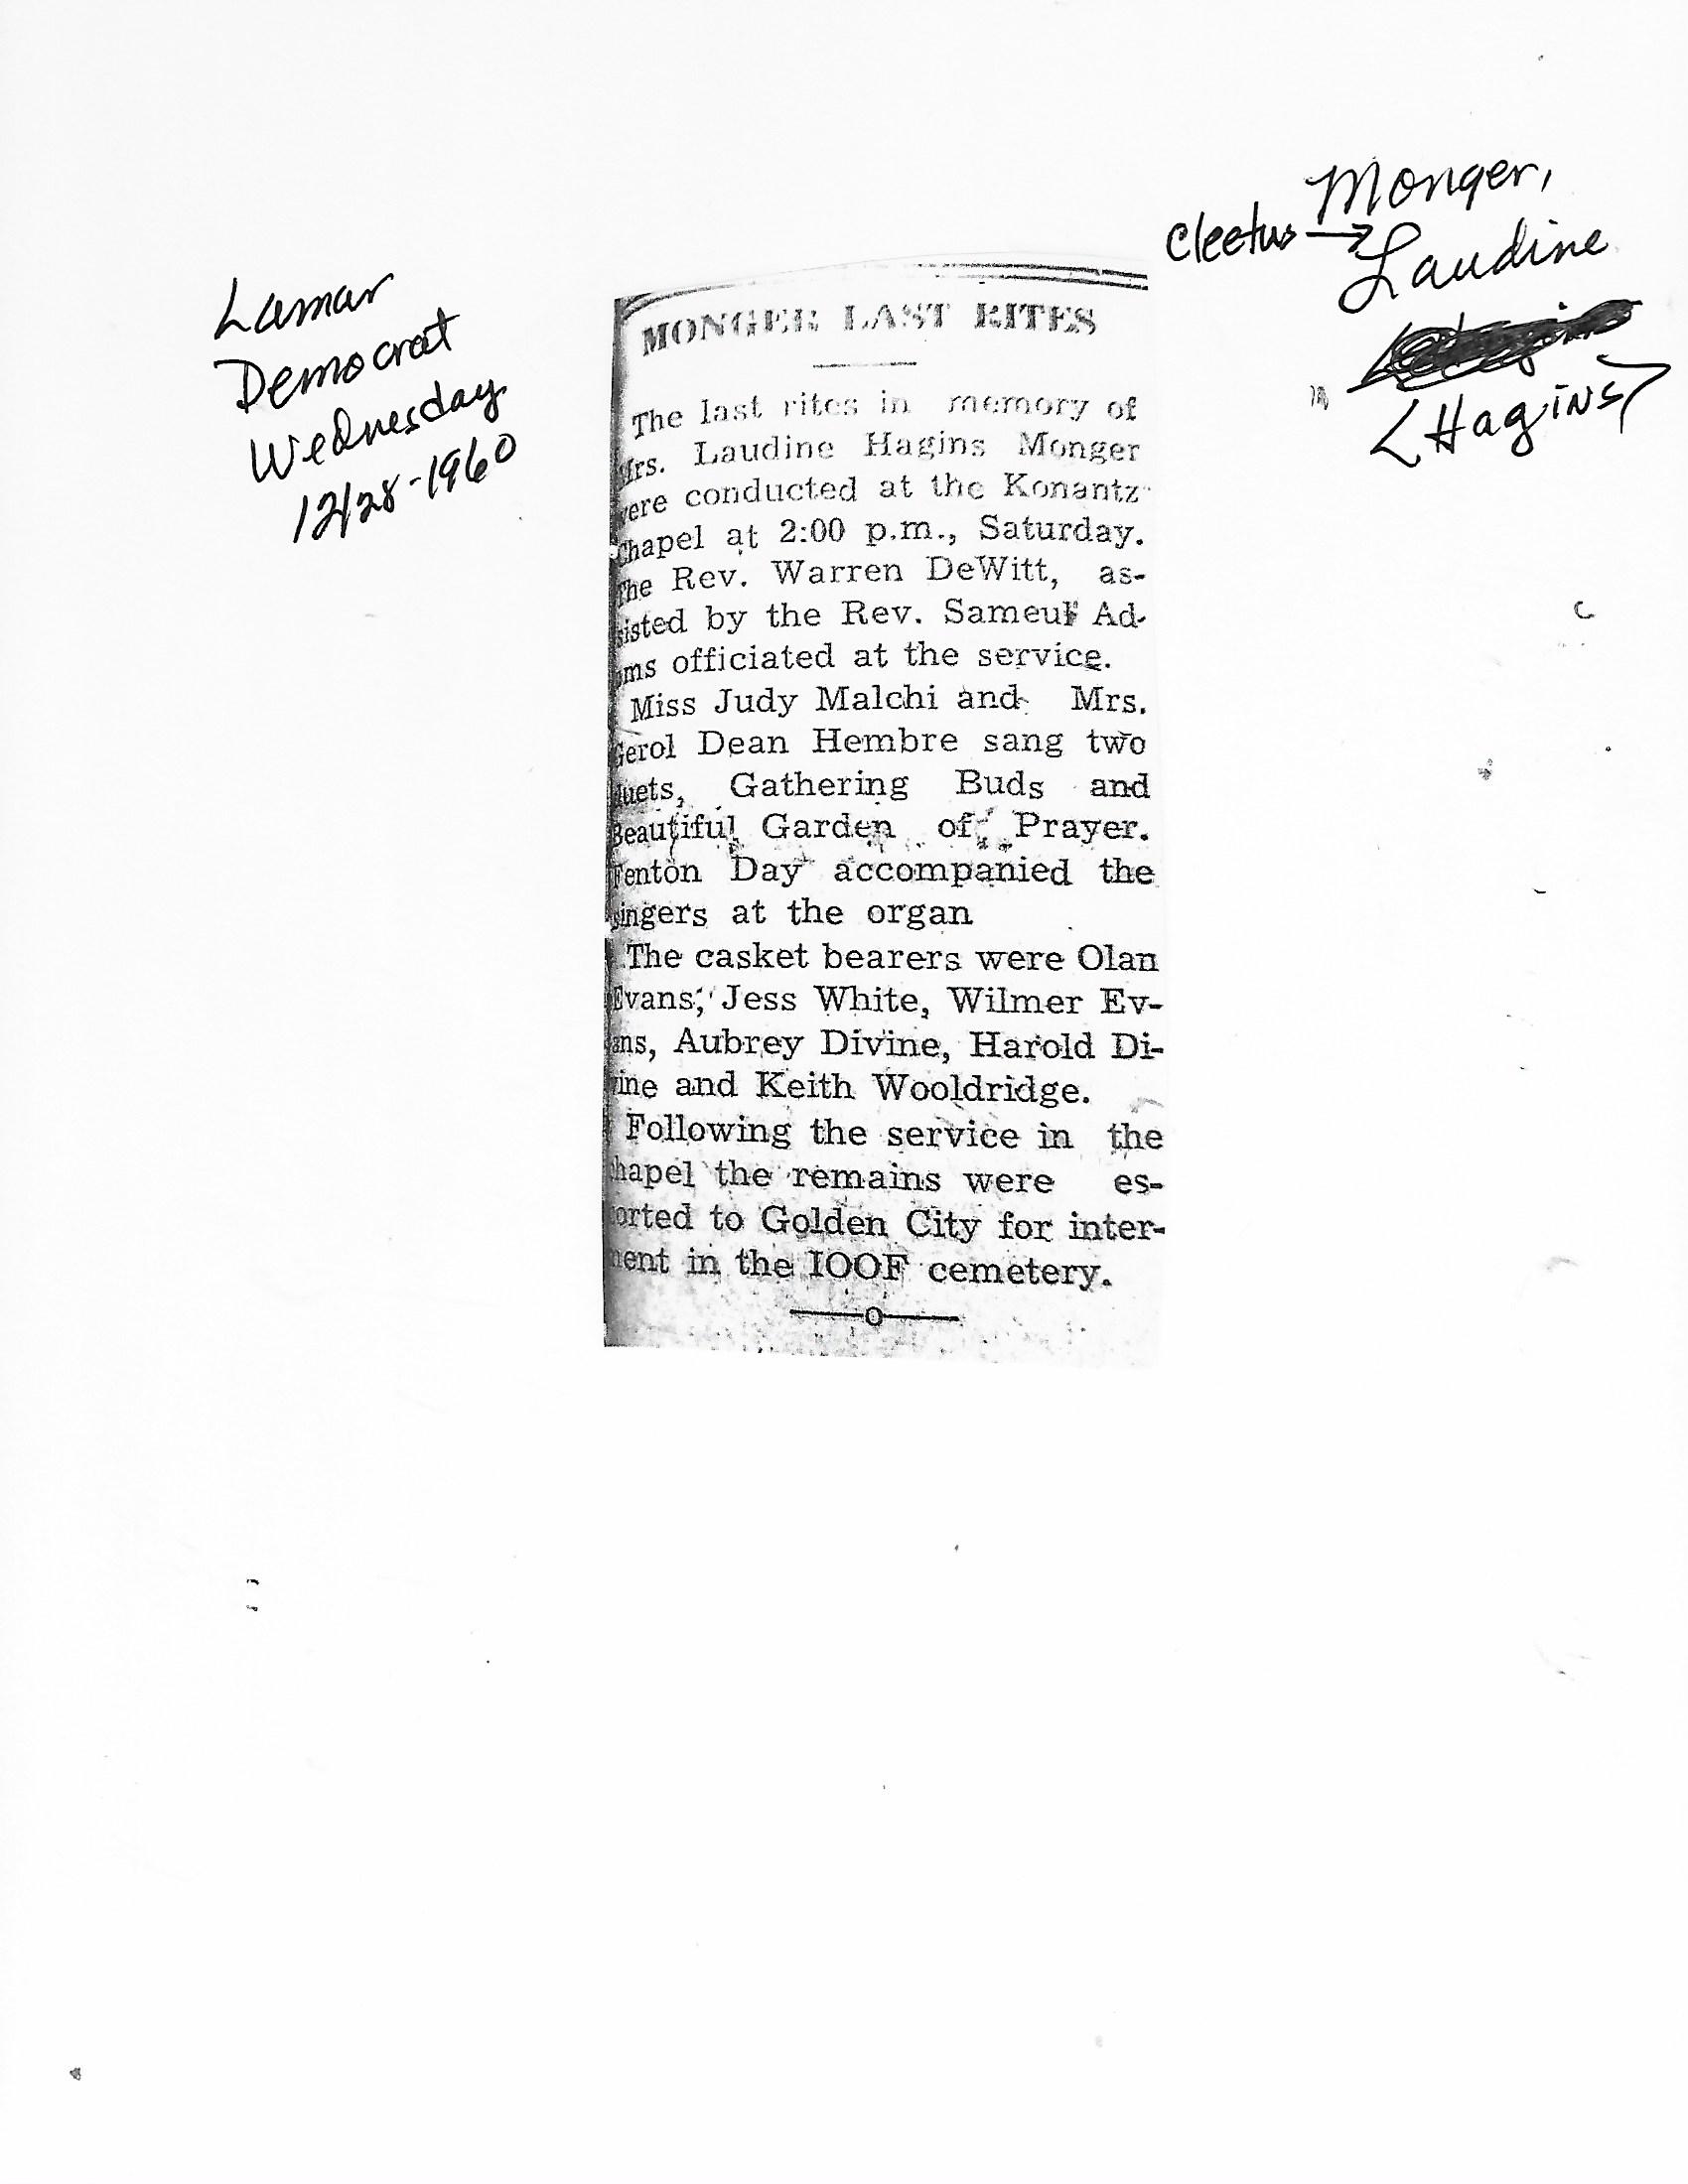 Lamar
Democrat
Wednesday
12/28-1960
Monger,
Cleetus → Laudine
<Hagins>
MONGER LAST RITES
The last rites in memory of
Mrs. Laudine Hagins Monger
were conducted at the Konantz
Chapel at 2:00 p.m., Saturday.
The Rev. Warren DeWitt, as-
sisted by the Rev. Sameul Ad-
ams officiated at the service.
Miss Judy Malchi and Mrs.
Gerol Dean Hembre sang two
duets, Gathering Buds and
Beautiful Garden of Prayer.
Fenton Day accompanied the
singers at the organ
The casket bearers were Olan
Evans, Jess White, Wilmer Ev-
ans, Aubrey Divine, Harold Di-
vine and Keith Wooldridge.
Following the service in the
chapel the remains were es-
corted to Golden City for inter-
ment in the IOOF cemetery.